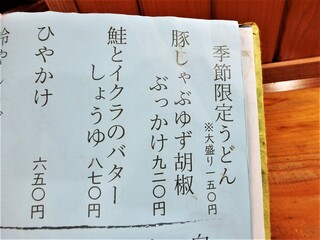 季節限定うどん
※大盛り一五〇円
豚しゃぶゆず胡椒
ぶっかけ九二〇円
鮭とイクラのバター
しょうゆ八七〇円
ひやかけ
六五〇円